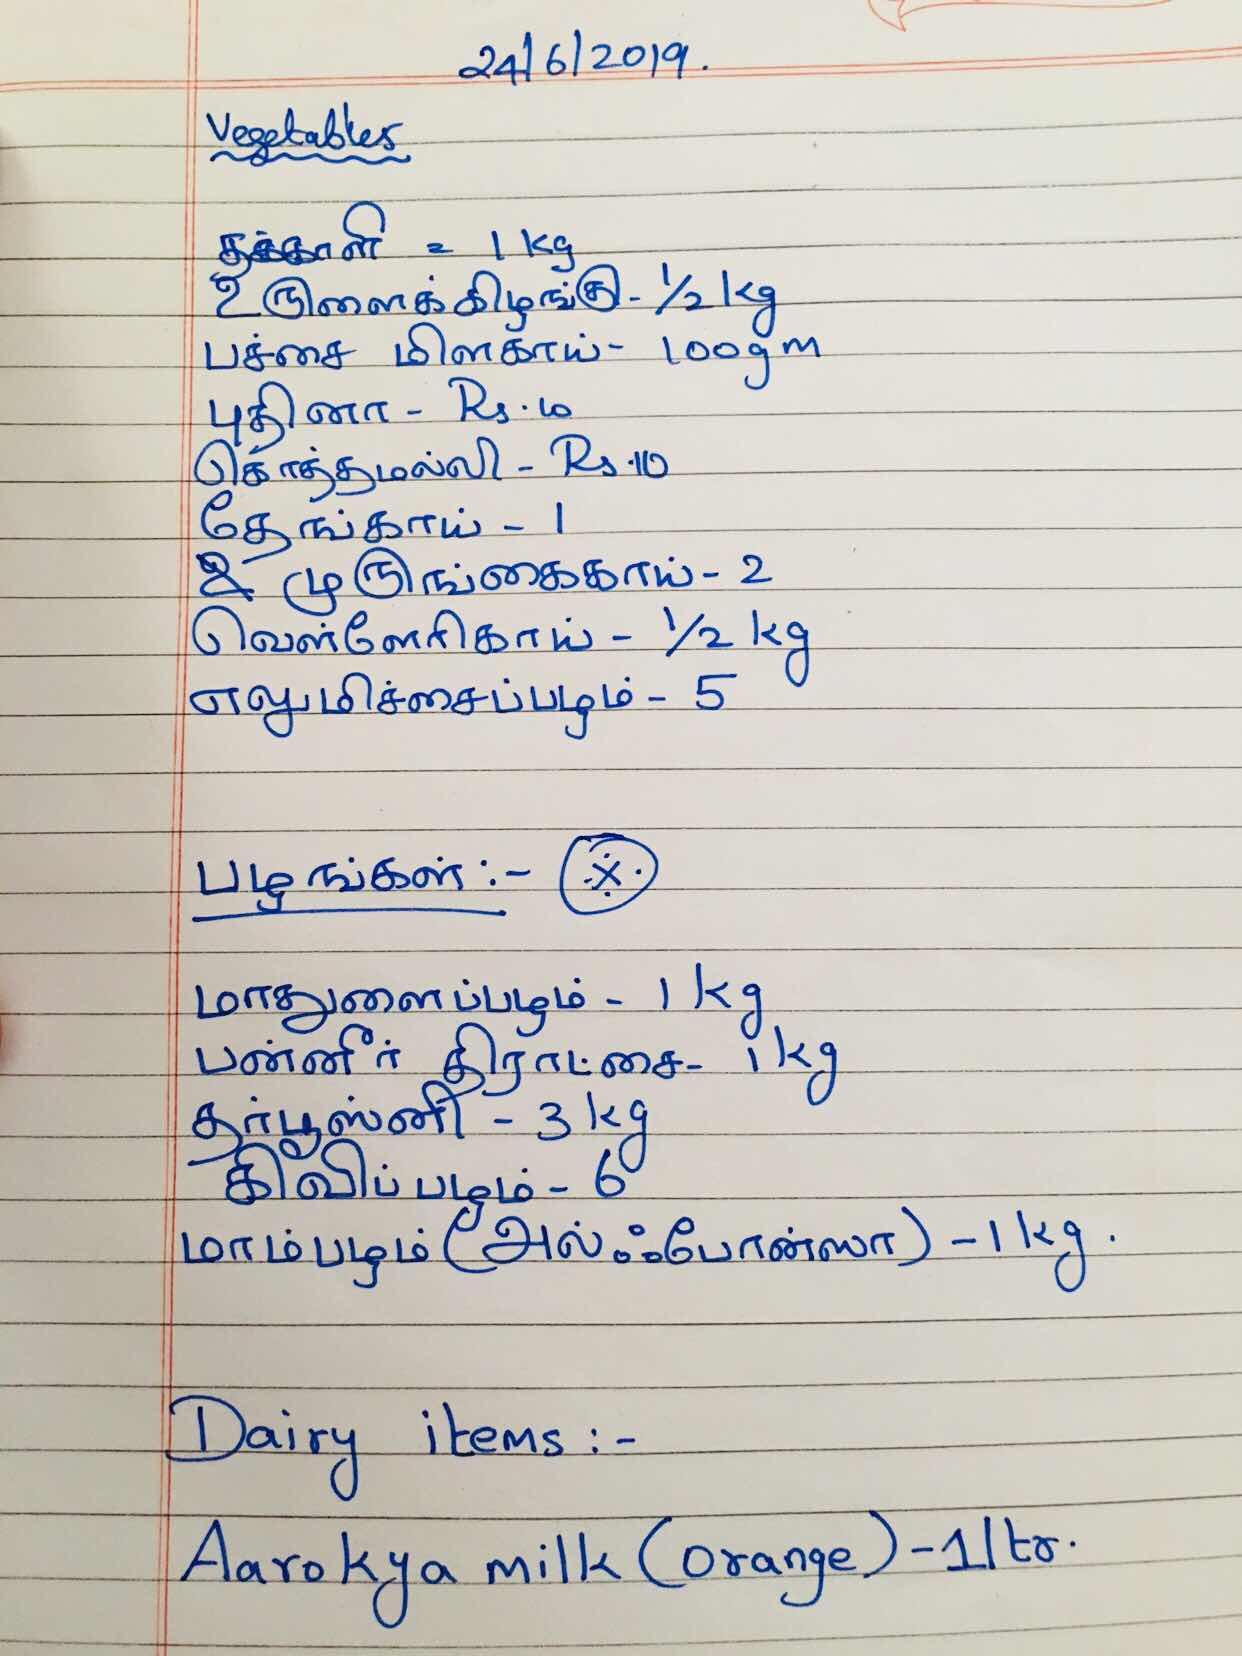 24/6/2019.
Vegetables
தக்காளி = 1 kg
உருளைக்கிழங்கு - 1/2 kg
பச்சை மிளகாய் - 100gm
புதினா - Rs. 10
கொத்தமல்லி - Rs. 10
தேங்காய் - 1
முருங்கைகாய் - 2
வெள்ளேரிகாய் - 1/2 kg
எலுமிச்சைப்பழம் - 5
பழங்கள் :-
மாதுளைப்பழம் - 1 kg
பன்னீர் திராட்சை - 1 kg
தர்பூஸ்னி - 3 kg
கிவிப்பழம் - 6
மாம்பழம் (அல்ஃபோன்ஸா) - 1 kg.
Dairy items :-
Aarokya milk (orange) - 1 ltr.